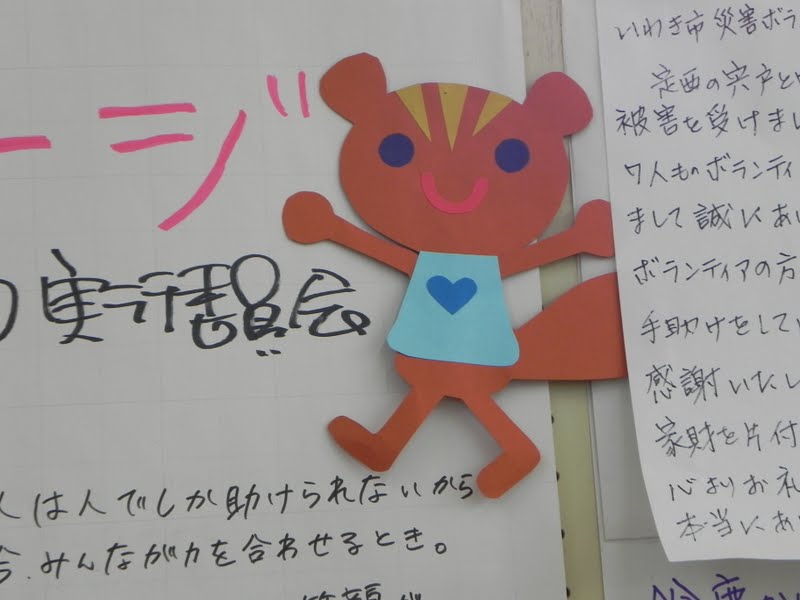 ージ
実行委員会
人は人でしか助けられないから
みんなが力を合わせるとき。
笑顔が
いわき市災害ボラ
被害を受けまし
7人ものボランティ
まして誠にあ
ボランティアの方
手助けをして
感謝いたし
家財を片付
心よりお礼
本当にあ